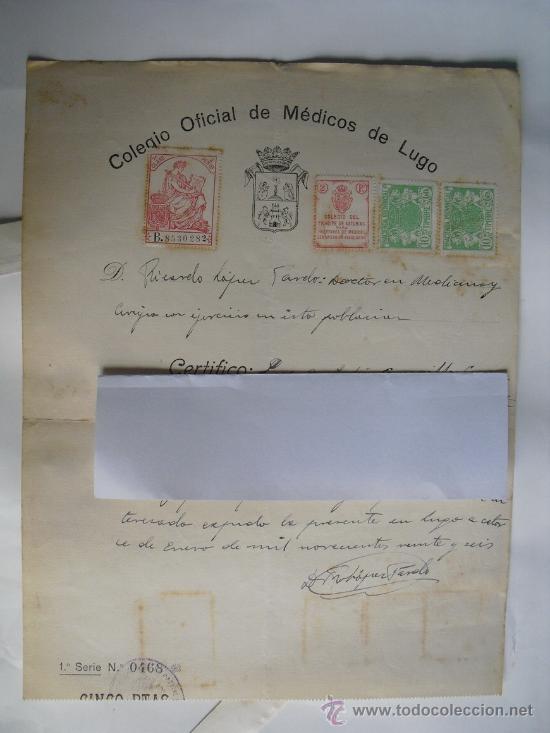 Colegio Oficial de Médicos de Lugo
B.8530282
2 Pts
COLEGIO DEL
PRÍNCIPE DE ASTURIAS
PARA
HUÉRFANOS DE MÉDICOS
D. Ricardo López Pardo: Doctor en Medicina y
Cirugía con ejercicio en esta poblacion
Certifico:
teresado expido la presente en Lugo a cator
ce de Enero de mil novecientos veinte y seis
R López Pardo
1.ª Serie N.º 0468
CINCO PTAS
www.todocoleccion.net
todocoleccion